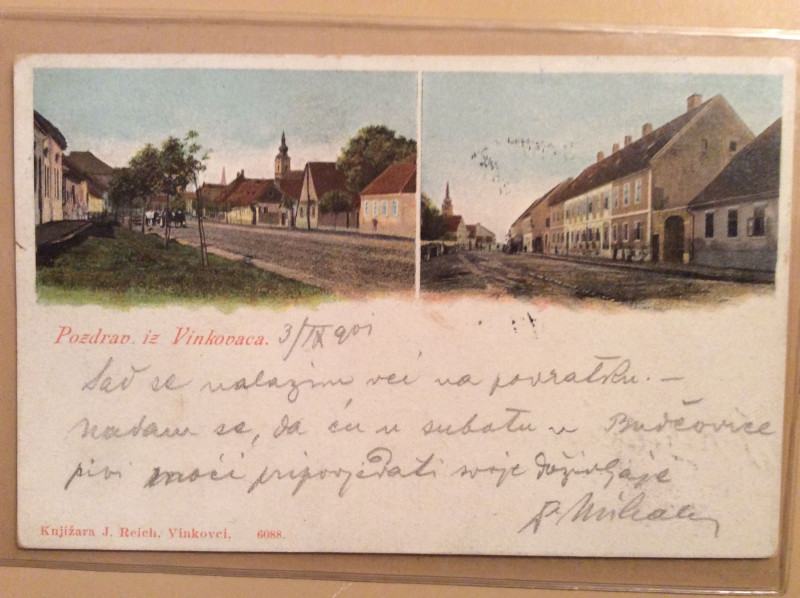 Pozdrav iz Vinkovaca. 3/IX 901
Sad se nalazim već na povratku. –
nadam se, da ću u subotu u
pivi moći pripovjedati svoje doživljaje
Knjižara J. Reich, Vinkovci, 6088.